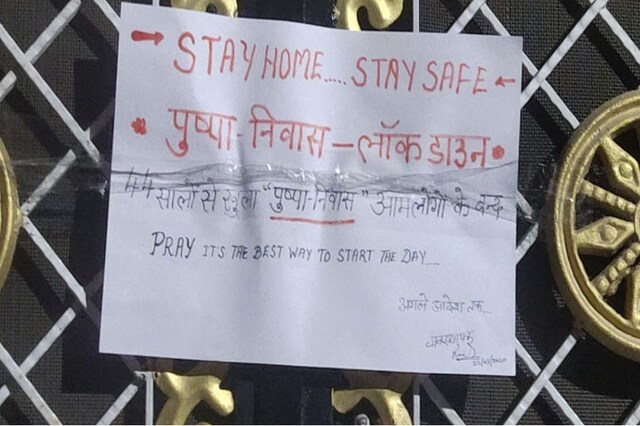 → STAY HOME..... STAY SAFE ←
* पुष्पा - निवास - लॉक डाउन *
44 सालों से खुला "पुष्पा-निवास" आमलोगों के बन्द
PRAY ITS THE BEST WAY TO START THE DAY...
अगले आदेश तक...